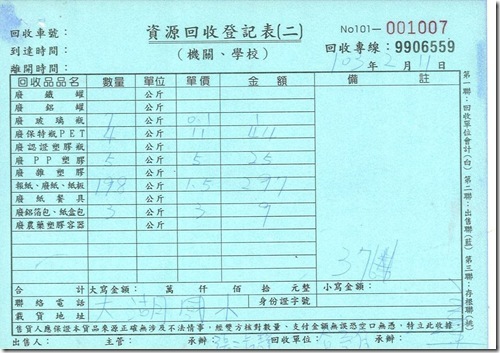 回收車號：
資源回收登記表(二)
No101－001007
到達時間：
(機關、學校)
回收專線：9906559
離開時間：
103年2月11日
回收品品名 數量 單位 單價 金額 備註
廢鐵罐 公斤
廢鋁罐 公斤
廢玻璃瓶 1 公斤 0.1 1
廢保特瓶PET 4 公斤 11 44
廢認證塑膠瓶 公斤
廢PP塑膠 5 公斤 5 25
廢雜塑膠 公斤
報紙、廢紙、紙板 198 公斤 1.5 297
廢紙餐具 公斤
廢鋁箔包、紙盒包 3 公斤 3 9
廢農藥塑膠容器 公斤
376
合計 大寫金額： 萬 仟 佰 拾 元整 小寫金額：
聯絡電話 大湖國小 身份證字號
載貨地址
售貨人應保證本貨品來源正確無涉及不法情事，經雙方核對數量、支付金額無誤恐空口無憑，特立此收據。
出售人： 主管： 承辦 回收單位： 承辦
第一聯：回收單位會計(白) 第二聯：出售聯(藍) 第三聯：存根聯(桃)